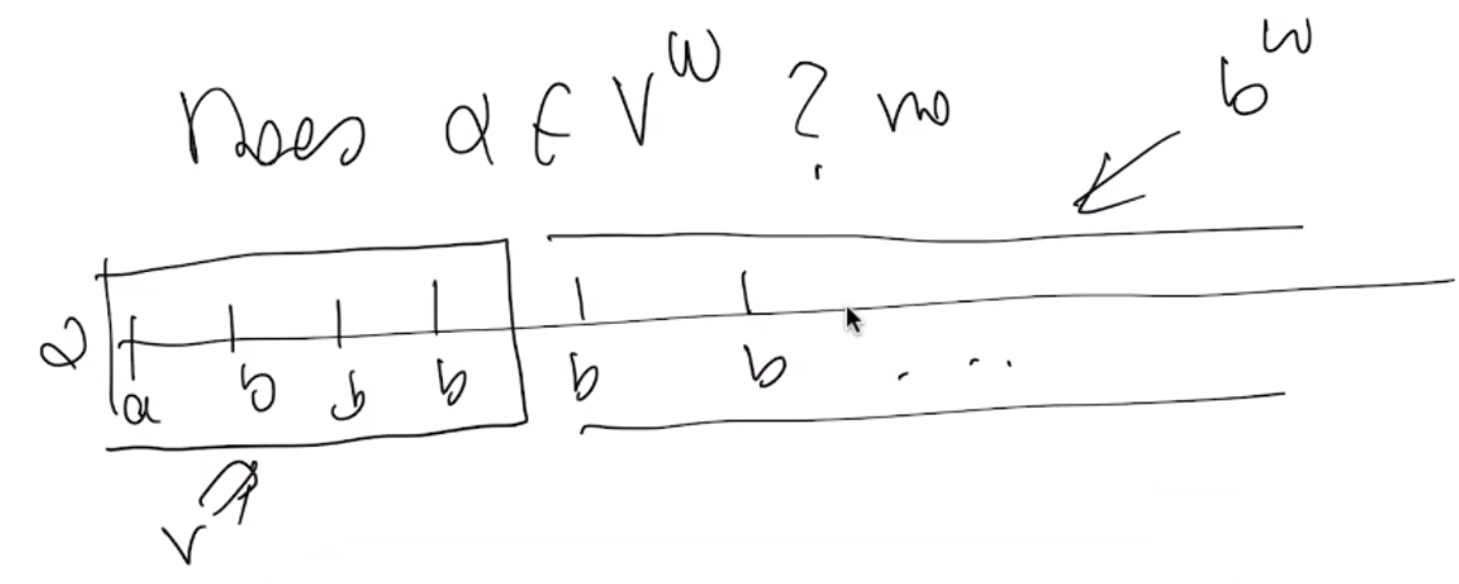 Does α ∈ V^ω ? no
b^ω
α
a b b b b b . . .
V